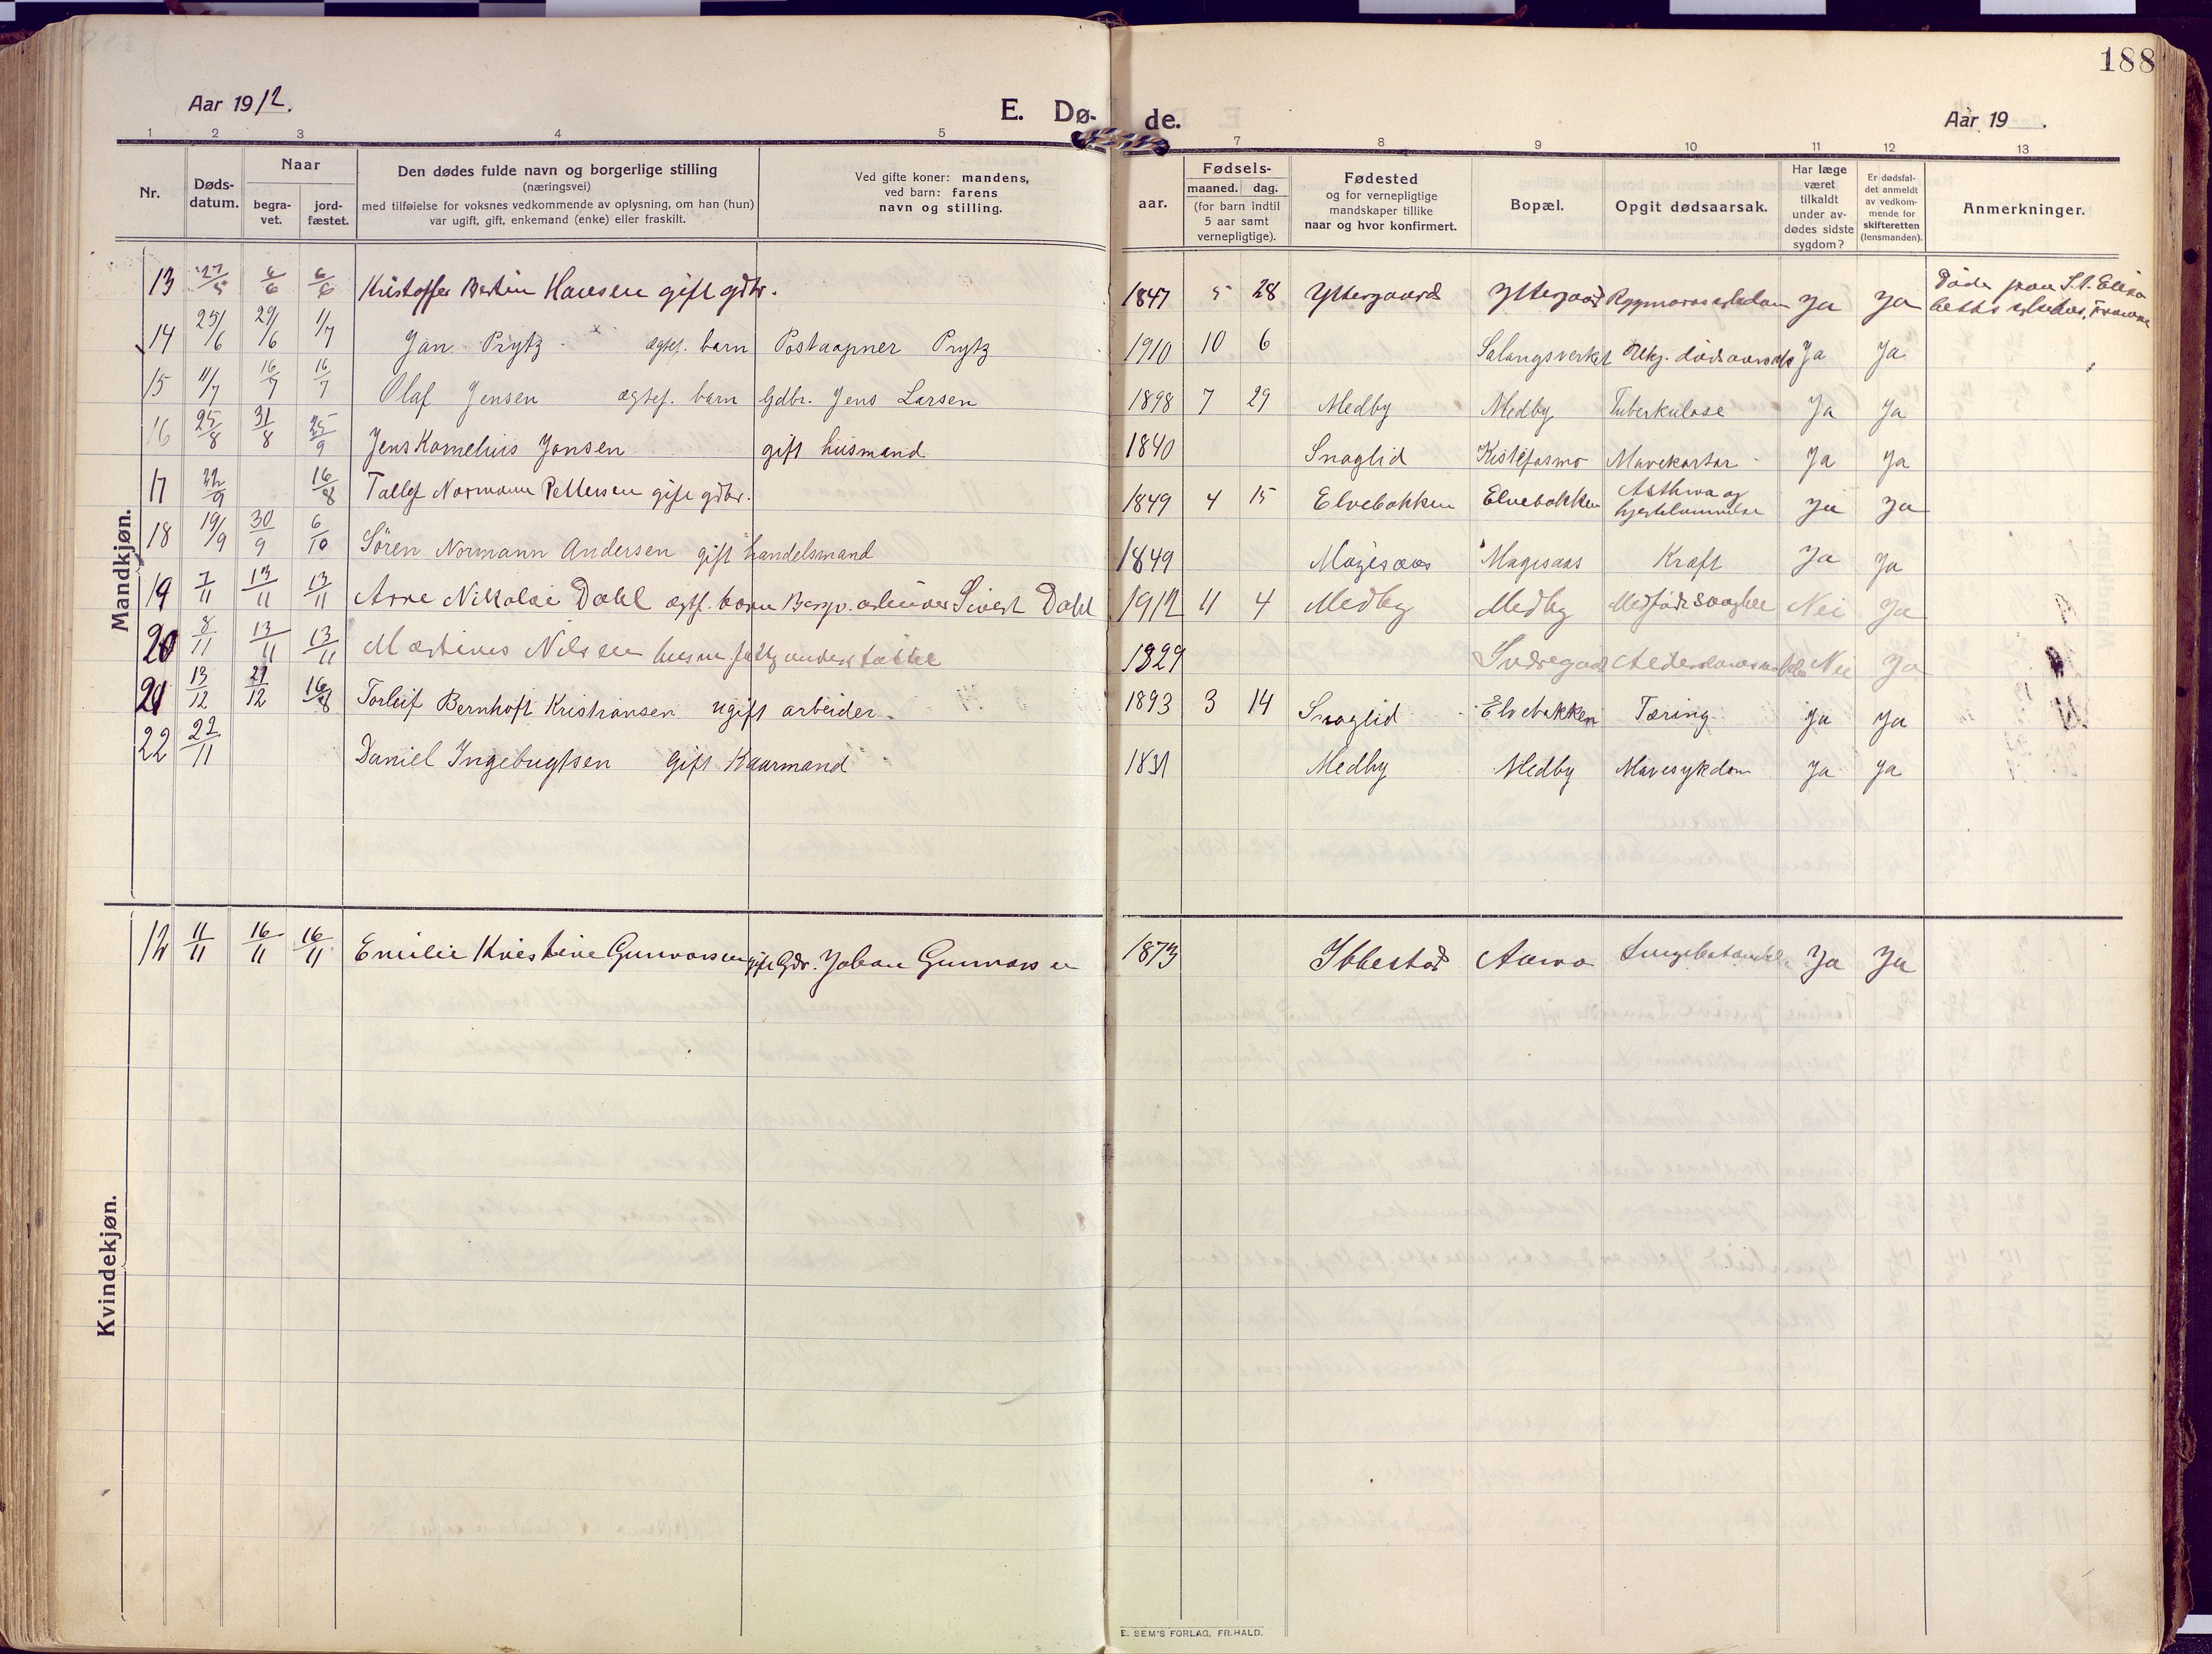 188
Aar 1912.
E. Dø-
de.
Aar 19 .
1 2 3 4 5 7 8 9 10 11 12 13
Nr.
Døds-
datum.
Naar
begra-
vet.
jord-
fæstet.
Den dødes fulde navn og borgerlige stilling
(næringsvei)
med tilføielse for voksnes vedkommende av oplysning, om han (hun)
var ugift, gift, enkemand (enke) eller fraskilt.
Ved gifte koner: mandens,
ved barn: farens
navn og stilling.
aar.
Fødsels-
maaned. dag.
(for barn indtil
5 aar samt
vernepligtige).
Fødested
og for vernepligtige
mandskaper tillike
naar og hvor konfirmert.
Bopæl.
Opgit dødsaarsak.
Har læge
været
tilkaldt
under av-
dødes sidste
sygdom?
Er dødsfal-
det anmeldt
av vedkom-
mende for
skifteretten
(lensmanden).
Anmerkninger.
Mandkjøn.
13 27/5 6/6 6/6 Kristoffer Bertin Hansen gift gdbr. 1847 5 28 Yttergaard Yttergaard Ja Ja Døde paa St. Elisa
beths
14 25/6 29/6 1/7 Jan Prytz ægtef. barn Postaapner Prytz 1910 10 6 Salangsverket Ubkj. dødsaarsak Ja Ja
15 11/7 16/7 16/7 Olaf Jensen ægtef. barn Gdbr. Jens Larsen 1898 7 29 Medby Medby Tuberkulose Ja Ja
16 25/8 31/8 25/9 Jens Kornelius Jansen gift husmand 1840 Snoglid Kistefosmo Mavekatar Ja Ja
17 22/9 16/8 Tollef Normann Pettersen gift gdbr. 1849 4 15 Elvebakken Elvebakken Asthma og
hjertelammelse Ja Ja
18 19/9 30/9 6/10 Sören Normann Andersen gift handelsmand 1849 Magesaas Magesaas Kræft Ja Ja
19 7/11 13/11 13/11 Arne Nikolai Dahl ægtf. barn Bergv. arbeider Sivert Dahl 1912 11 4 Medby Medby Medfødt svaghet Nei Ja
20 8/11 13/11 13/11 Martinus Nilsen husm. fattigunderstøttet 1829 Nei Ja
21 13/12 27/12 16/8 Torleif Bernhoft Kristiansen ugift arbeider. 1893 3 14 Snoglid Elvebakken Tæring Ja Ja
22 22/11 Daniel Ingebrigtsen Gift Kaarmand 1831 Medby Medby Mavesykdom Ja Ja
Kvindekjøn.
12 11/11 16/11 16/11 Emilie Kristine Gunvorsen gift Gdr. Johan Gunvorsen 1873 Ibbestad Aarvo Ja Ja
E. SEM'S FORLAG, FR.HALD.